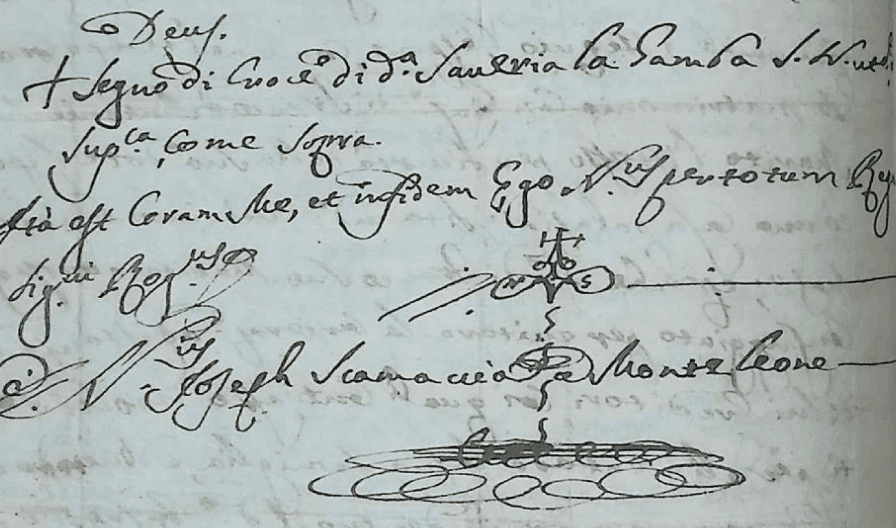 Deus.
+ Segno di Croce di d.ª Saveria la Gamba
Sup.ca, Come Sopra.
Ità est Coram Me, et in fidem Ego N.us per totum
sig.vi Rog.us
N.us Joseph Scamaccia a Monte Leone